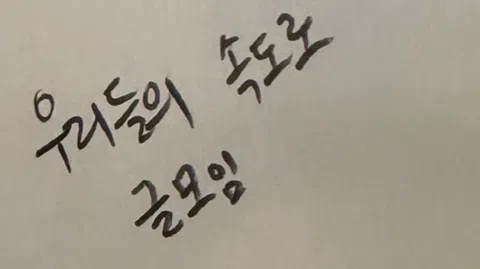 우리들의 속도로
글모임